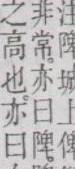 注陴城上俾
非常。亦曰陴。
之高也。亦曰